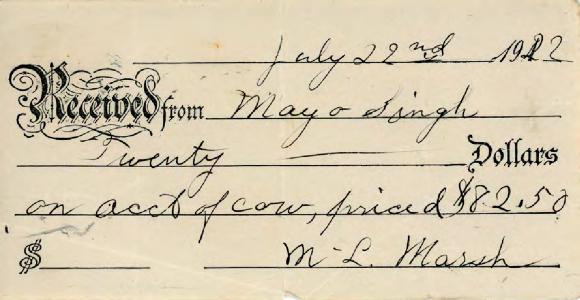 July 22nd 1912
Received from Mayo Singh
Twenty Dollars
on acct of cow, priced $82.50
$ M L. Marsh